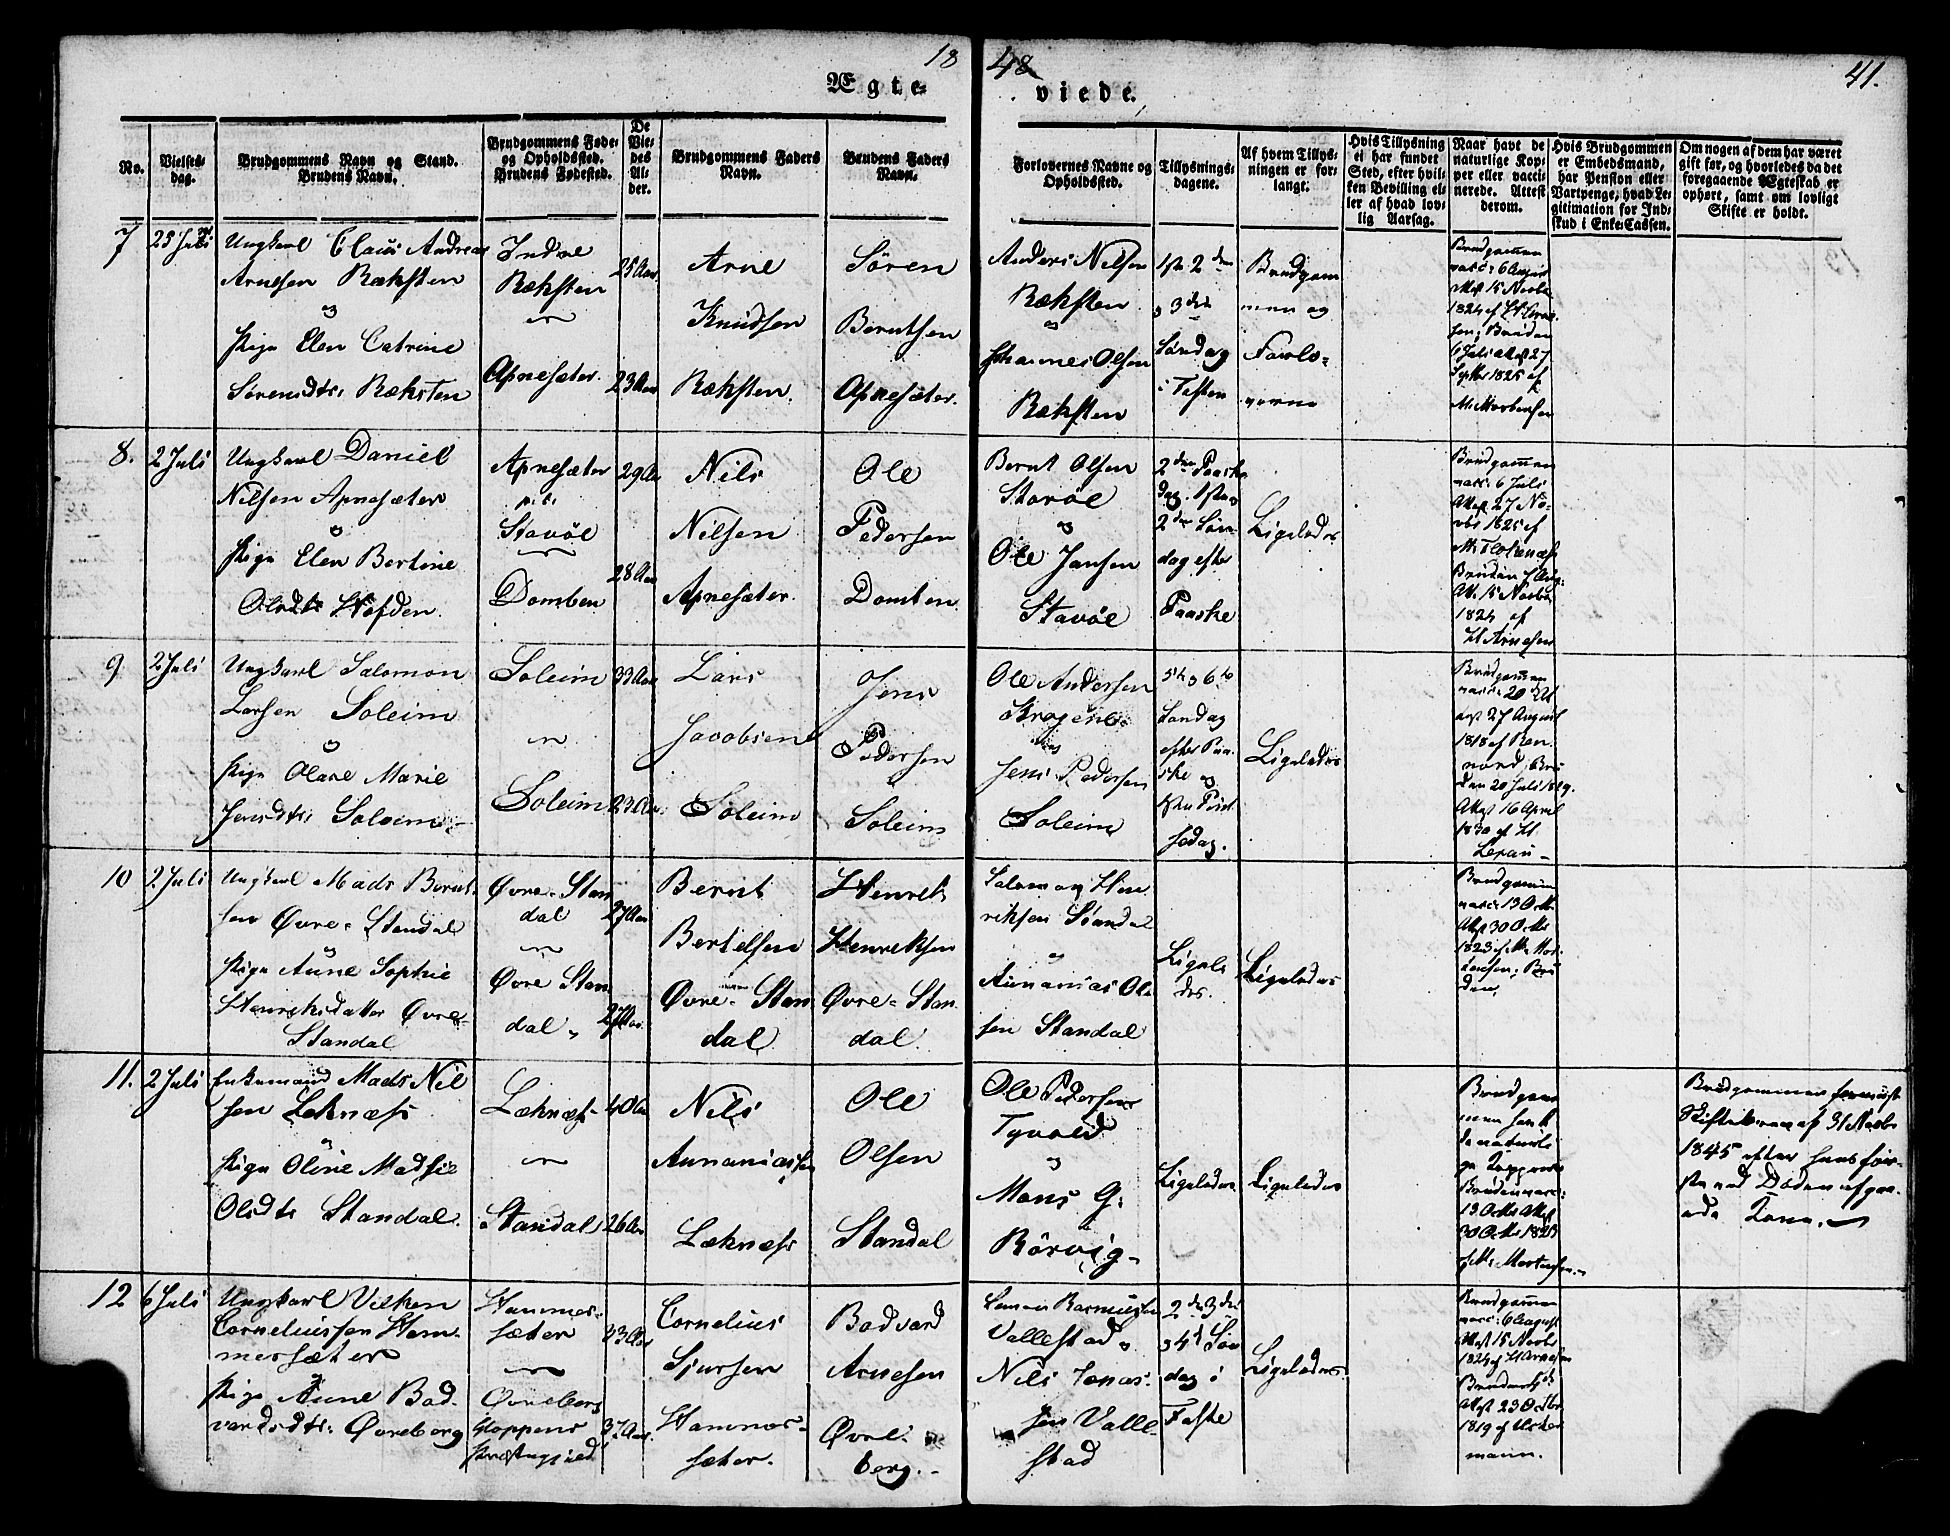 18 48
41.
Ægte=
viede.
No.
Vielses=
dag.
Brudgommens Navn og Stand.
Brudens Navn.
Brudgommens Føde=
og Opholdssted.
Brudens Fødested.
De
Vie=
des
Al=
der.
Brudgommens Faders
Navn.
Brudens Faders
Navn.
Forlovernes Navne og
Opholdssted.
Tillysnings=
dagene.
Af hvem Tillys=
ningen er for=
langt.
Hvis Tillysning
ei har fundet
Sted, efter hvil=
ken Bevilling el=
ler af hvad lov=
lig Aarsag.
Naar havt de
naturlige Kop=
per eller vacci=
nerede. Attest
derom.
Hvis Brudgommen
er Embedsmand,
har Pension eller
Vartpenge, hvad Le=
gitimation for Ind=
skud i Enke=Cassen.
Om nogen af dem har været
gift før, og hvorledes da det
foregaaende Ægteskab er
ophørt, samt om lovligt
Skifte er holdt.
7
Ungkarl Claus Andreas
Arnesen Ræksten
og
Pige Elen Catrine
Sørensdtr: Ræksten
Indre
Ræksten
Apnesæter.
25 Aar
23 Aar
Arne
Knudsen
Ræksten.
Søren
Berntsen
Apnesæter.
Anders Nilsen
Ræksten
og
Johannes Olsen
Ræksten
1ste 2den
og 3die
Søndag
i Fasten
Brudgom
men og
Forlo=
verne
Brudgommen
vacc: 6 August
Attest 15 Novbr
1824 af H. Arne
sen; Bruden
6 Juli Attest 27
Septbr 1825 af
M. Mortensen
8.
2 Juli
Ungkarl Daniel
Nilsen Apnesæter
og
Pige Elen Bertine
Olsdtr Hefden.
Apnesæter
Stavøe
Domben
29 Aar
28 Aar
Nils
Nilsen
Apnesæter.
Ole
Pedersen
Domben
Bernt Olsen
Stavøe
og
Ole Jansen
Stavøe
2den Paaske
dag. 1ste og
2den Søn
dag efter
Paaske
Ligeledes
Brudgommen
vacc: 6 Juli
Attest 27 No=
vbr 1825 af
Bruden 7 Aug:
Att. 15 Novbr
1824 af
H Arnesen
9
2 Juli
Ungkarl Salomon
Larsen Soleim
og
Pige Olave Marie
Jensdtr: Soleim
Soleim
Soleim
33 Aar
23 Aar
Lars
Jacobsen
Soleim
Jens
Pedersen
Soleim
Ole Andersen
og
Jens Pedersen
Soleim
5te og 6te
Søndag
efter Paa=
ske og
1ste Pint
sedag.
Ligeledes
Brudgommen
vacc: 20
27 August
1818 af Ren
nord; Bru
den 20 Juli 1829.
Attest 16 April
1830 af H.
10
2 Juli
Ungkarl Mads Bernt
sen Øvre=Standal
og
Pige Anne Sophie
Henriksdatter Øvre=
Standal
Øvre=Stan
dal
Øvre Stan
dal
27 Aar
27 Aar.
Bernt
Bertelsen
Øvre=Stan
dal
Henrik
Henriksen
Øvre=Stan
dal.
Salamon Hen
riksen Standal
og
Ananias Ol
sen Standal
Ligele
des.
Ligeledes
Brudgommen
vacc: 13 Octbr
Attest 30 Octbr
1823 af M. Mor
tensen; Bru
den,
11.
2 Juli
Enkemand Mads Nil
sen Leknæs
og
Pige Oline Madsie
Olsdtr Standal.
Læknæs
Standal
40 Aar
26 Aar
Nils
Annaniassen
Læknæs
Ole
Olsen
Standal
Ole Pedersen
Tyvold
og
Mons G.
Rörvig
Ligeledes
Ligeledes
Brudgom
men havt
de naturli
ge Kopper
Bruden vacc:
13 Octbr Attest
30 Octbr 1823
af M. Mortensen.
Brudgommen foreviist
Skiftebrev af 31 Marts
1845 efter hans før=
ste ved Døden afgaa=
ede Kone.
12
6 Juli
Ungkarl Vilken
Corneliussen Ham=
mersæter
og
Pige Anne Bad=
vardsdtr: Øvreberg
Hammer=
sæter
Øvreberg
Gloppens
Præstegjæld
33 Aar
37 Aar.
Cornelius
Sjursen
Hammer=
sæter.
Badvard
Arnesen
Øvre=
berg.
Rasmussen
Vallestad og
Nils Jonas=
sen Valle
stad
2den 3die
og 4de Søn
dag i
Faste
Ligeledes
Brudgommen
vacc: 6 August
Attest 15 Novbr
1824 af H Arnesen
Attest 23 Octbr
1819
mann.